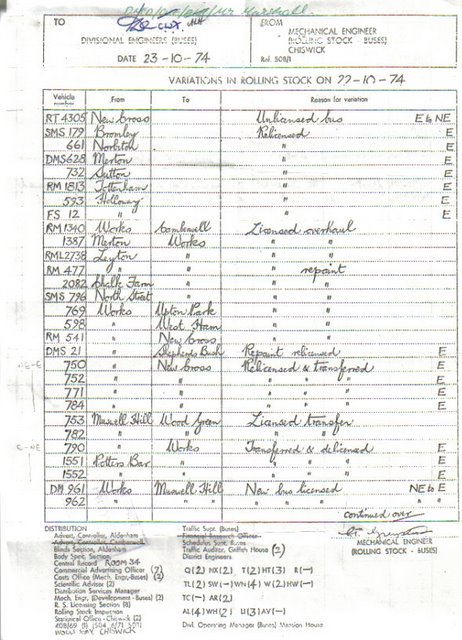 TO
DIVISIONAL ENGINEERS (BUSES)
DATE 23-10-74
FROM
MECHANICAL ENGINEER
(ROLLING STOCK - BUSES)
CHISWICK
Ref. 508/1
VARIATIONS IN ROLLING STOCK ON 22-10-74
Vehicle number From To Reason for variation
RT 4305 New Cross Unlicensed bus E to NE
SMS 179 Bromley Relicensed E
661 Norbiton " E
DMS 628 Merton " E
732 Sutton " E
RM 1813 Tottenham " E
593 Holloway " E
FS 12 " " E
RM 1340 Works Camberwell Licensed overhaul
1387 Merton Works " "
RML 2738 Leyton " " "
RM 477 " " " repaint
2082 Chalk Farm " " "
SMS 796 North Street " " "
769 Works Upton Park " "
598 " West Ham " "
RM 541 " New Cross " "
DMS 21 " Shepherds Bush Repaint relicensed E
NE-E 750 " New Cross Relicensed & transferred E
752 " " " " " E
771 " " " " " E
784 " " " " " E
753 Muswell Hill Wood Green Licensed transfer
782 " " " "
E-NE 790 " Works Transferred & delicensed E
1551 Potters Bar " " " " E
1552 " " " " " E
DM 961 Works Muswell Hill New bus licensed NE to E
962 " " " " " " " "
continued over
MECHANICAL ENGINEER
(ROLLING STOCK - BUSES)
DISTRIBUTION
Advert. Controller, Aldenham
Blinds Section, Aldenham
Body Spec. Section
Central Record ROOM 34
Commercial Advertising Officer (7)
Costs Office (Mech. Engr.-Buses) (2)
Scientific Adviser (2)
Distribution Services Manager
Mech. Engr. (Development - Buses) (2)
R. S. Licensing Section (8)
Rolling Stock Inspection
Statistical Office - Chiswick (2)
WOOD BAY, CHISWICK
Traffic Supt. (Buses)
Financial Research Officer
Schedules Supt. Buses
Traffic Auditor, Griffith House (2)
District Engineers
Q(2) NX(2) T(2) HT(3) R(-)
TL(2) SW(-) WN(4) W(2) HW(-)
TC(-) AR(2)
AL(4) WH(2) U(3) AV(-)
Divl. Operating Manager (Buses) Mansion House